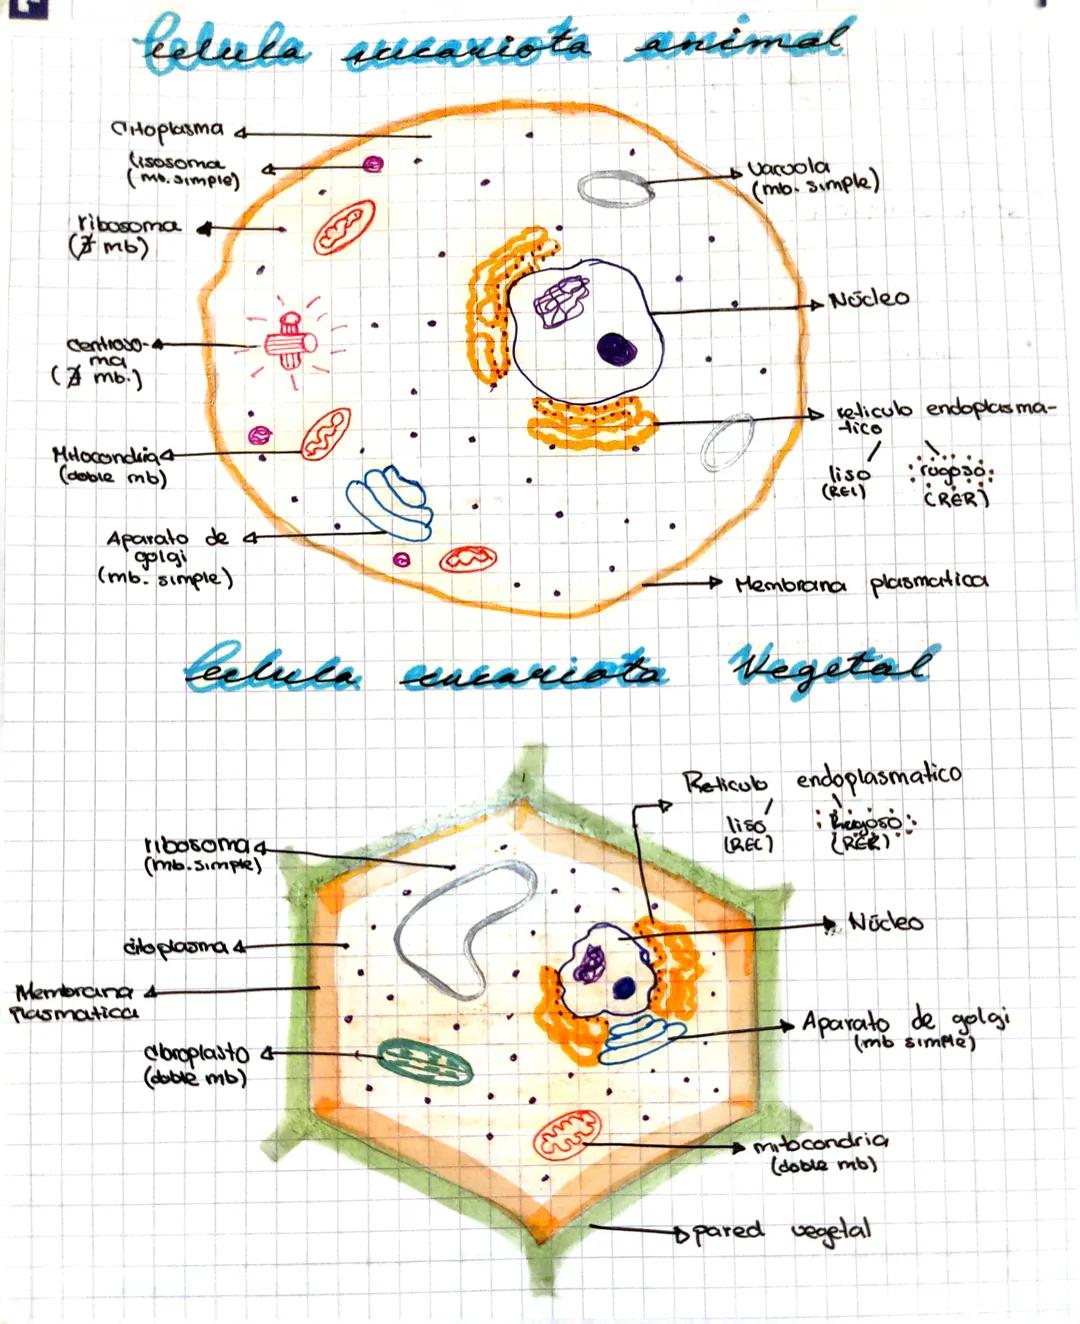 Celula eucariota animal
Citoplasma
lisosoma
(mb. simple)
ribosoma
(∄ mb)
centroso-
ma
(∄ mb.)
Mitocondria
(doble mb)
Aparato de
golgi
(mb. simple)
Vacuola
(mb. simple)
Núcleo
reticulo endoplasma-
-tico
liso
(REL)
rugoso
(RER)
Membrana plasmatica
Celula eucariota Vegetal
ribosoma
(mb. simple)
citoplasma
Membrana
plasmatica
cloroplasto
(doble mb)
Reticulo endoplasmatico
liso
(REL)
Rugoso
(RER)
Núcleo
Aparato de golgi
(mb simple)
mitocondria
(doble mb)
pared vegetal